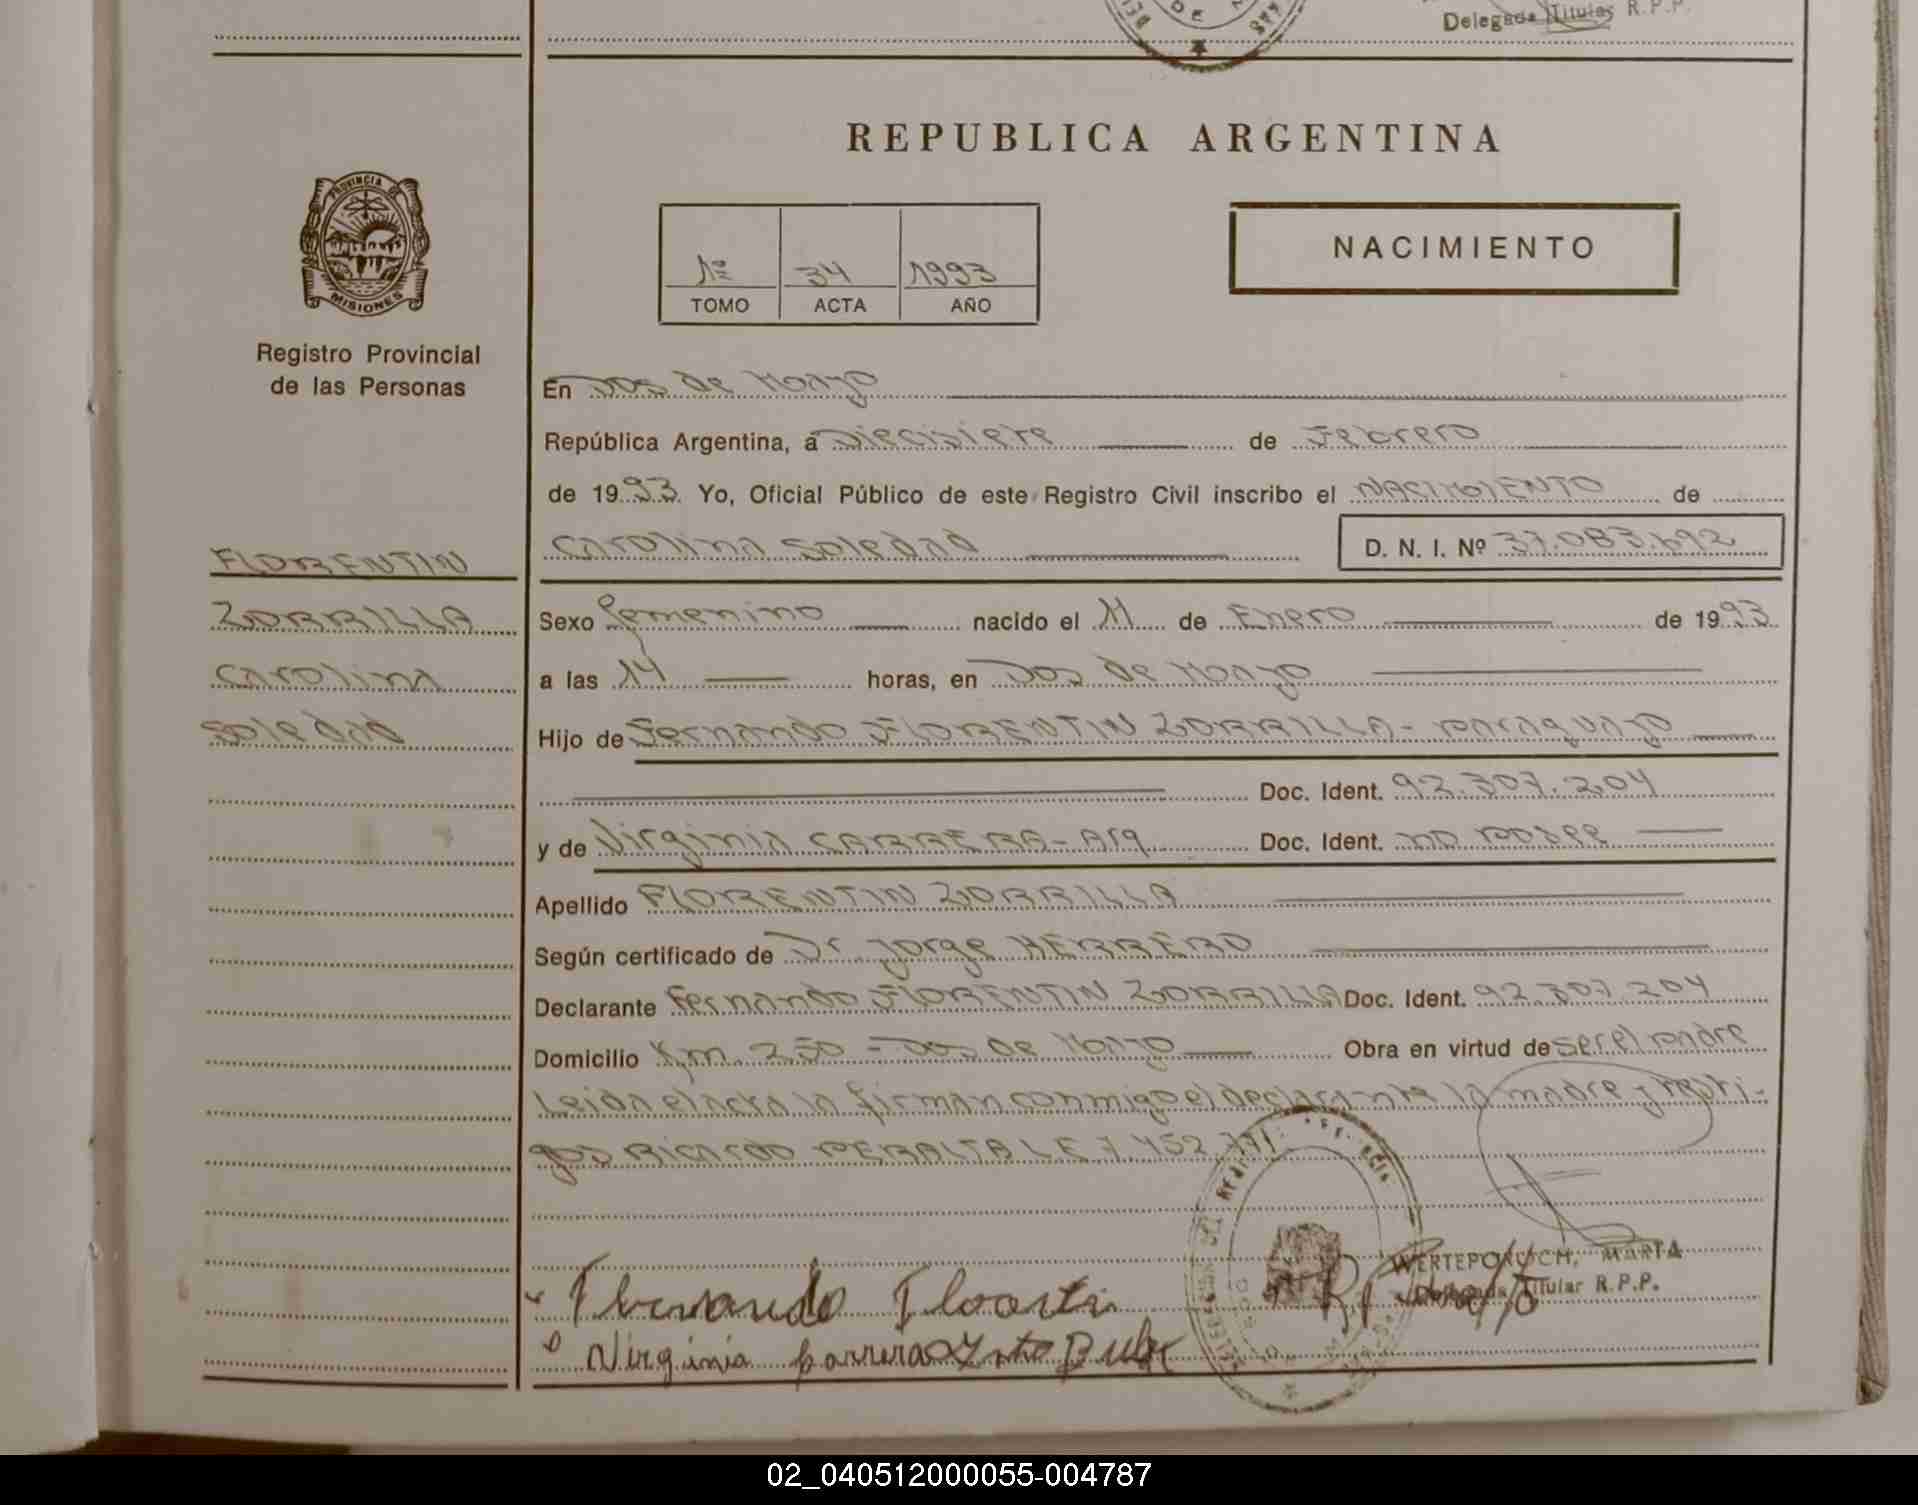 Delegada Titular R.P.P.
REPUBLICA ARGENTINA
PROVINCIA DE
MISIONES
1º 34 1993
TOMO ACTA AÑO
NACIMIENTO
Registro Provincial
de las Personas
En Dos de Mayo
República Argentina, a Diecisiete de Febrero
de 1993 Yo, Oficial Público de este Registro Civil inscribo el NACIMIENTO de
Carolina Soledad D. N. I. Nº 37.083.692
FLORENTIN
ZORRILLA
Carolina
Soledad
Sexo femenino nacido el 11 de Enero de 1993
a las 14 horas, en Dos de Mayo
Hijo de Fernando FLORENTIN ZORRILLA - paraguayo
Doc. Ident. 92.307.204
y de Virginia CARRERA - Arg Doc. Ident. no posee
Apellido FLORENTIN ZORRILLA
Según certificado de Dr Jorge HERRERO
Declarante Fernando FLORENTIN ZORRILLA Doc. Ident. 92.307.204
Domicilio Km. 250 - Dos de Mayo Obra en virtud de ser el padre
Leida el acta la firman conmigo el declarante la madre y testi-
gos Ricardo PERALTA LE 7.452.771
WERTEPONUCH, MARTA
Delegada Titular R.P.P.
Virginia Carrera
02_040512000055-004787